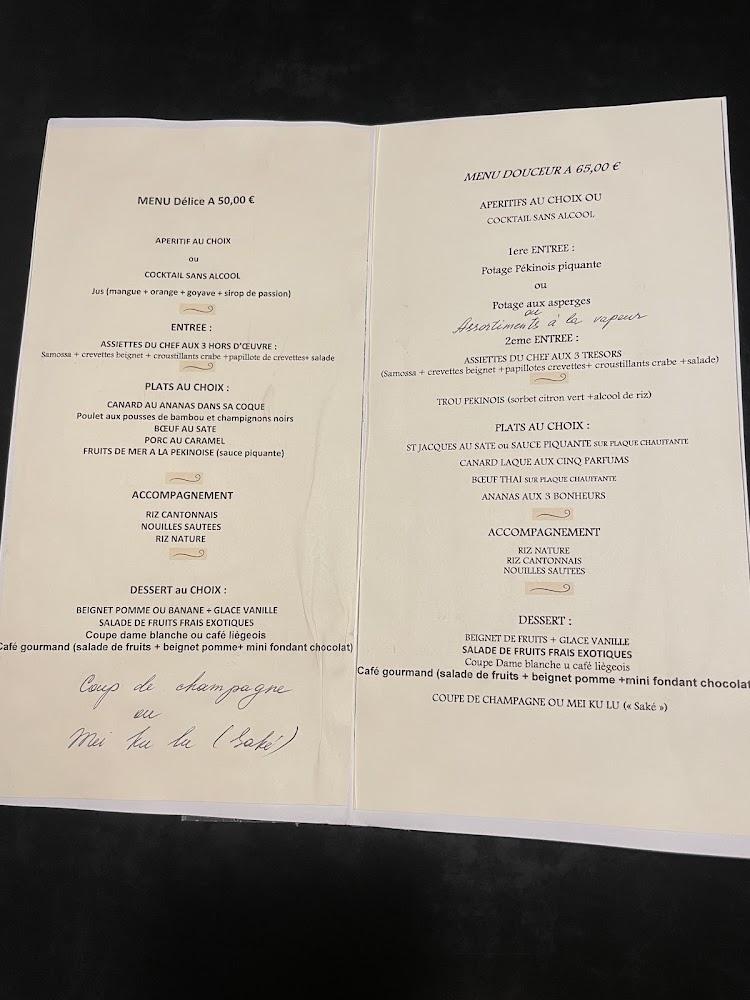 MENU Délice A 50,00 €
APERITIF AU CHOIX
ou
COCKTAIL SANS ALCOOL
Jus (mangue + orange + goyave + sirop de passion)
ENTREE :
ASSIETTES DU CHEF AUX 3 HORS D'ŒUVRE :
Samossa + crevettes beignet + croustillants crabe +papillote de crevettes+ salade
PLATS AU CHOIX :
CANARD AU ANANAS DANS SA COQUE
Poulet aux pousses de bambou et champignons noirs
BŒUF AU SATE
PORC AU CARAMEL
FRUITS DE MER A LA PEKINOISE (sauce piquante)
ACCOMPAGNEMENT
RIZ CANTONNAIS
NOUILLES SAUTEES
RIZ NATURE
DESSERT au CHOIX :
BEIGNET POMME OU BANANE + GLACE VANILLE
SALADE DE FRUITS FRAIS EXOTIQUES
Coupe dame blanche ou café liégeois
Café gourmand (salade de fruits + beignet pomme+ mini fondant chocolat)
Coup de champagne
ou
Mei ku lu (Saké)
MENU DOUCEUR A 65,00 €
APERITIFS AU CHOIX OU
COCKTAIL SANS ALCOOL
1ere ENTREE :
Potage Pékinois piquante
ou
Potage aux asperges
ou
Assortiments à la vapeur
2eme ENTREE :
ASSIETTES DU CHEF AUX 3 TRESORS
(Samossa + crevettes beignet +papillotes crevettes+ croustillants crabe +salade)
TROU PEKINOIS (sorbet citron vert +alcool de riz)
PLATS AU CHOIX :
ST JACQUES AU SATE ou SAUCE PIQUANTE SUR PLAQUE CHAUFFANTE
CANARD LAQUE AUX CINQ PARFUMS
BŒUF THAI SUR PLAQUE CHAUFFANTE
ANANAS AUX 3 BONHEURS
ACCOMPAGNEMENT
RIZ NATURE
RIZ CANTONNAIS
NOUILLES SAUTEES
DESSERT :
BEIGNET DE FRUITS + GLACE VANILLE
SALADE DE FRUITS FRAIS EXOTIQUES
Coupe Dame blanche u café liégeois
Café gourmand (salade de fruits + beignet pomme +mini fondant chocolat
COUPE DE CHAMPAGNE OU MEI KU LU (« Saké »)